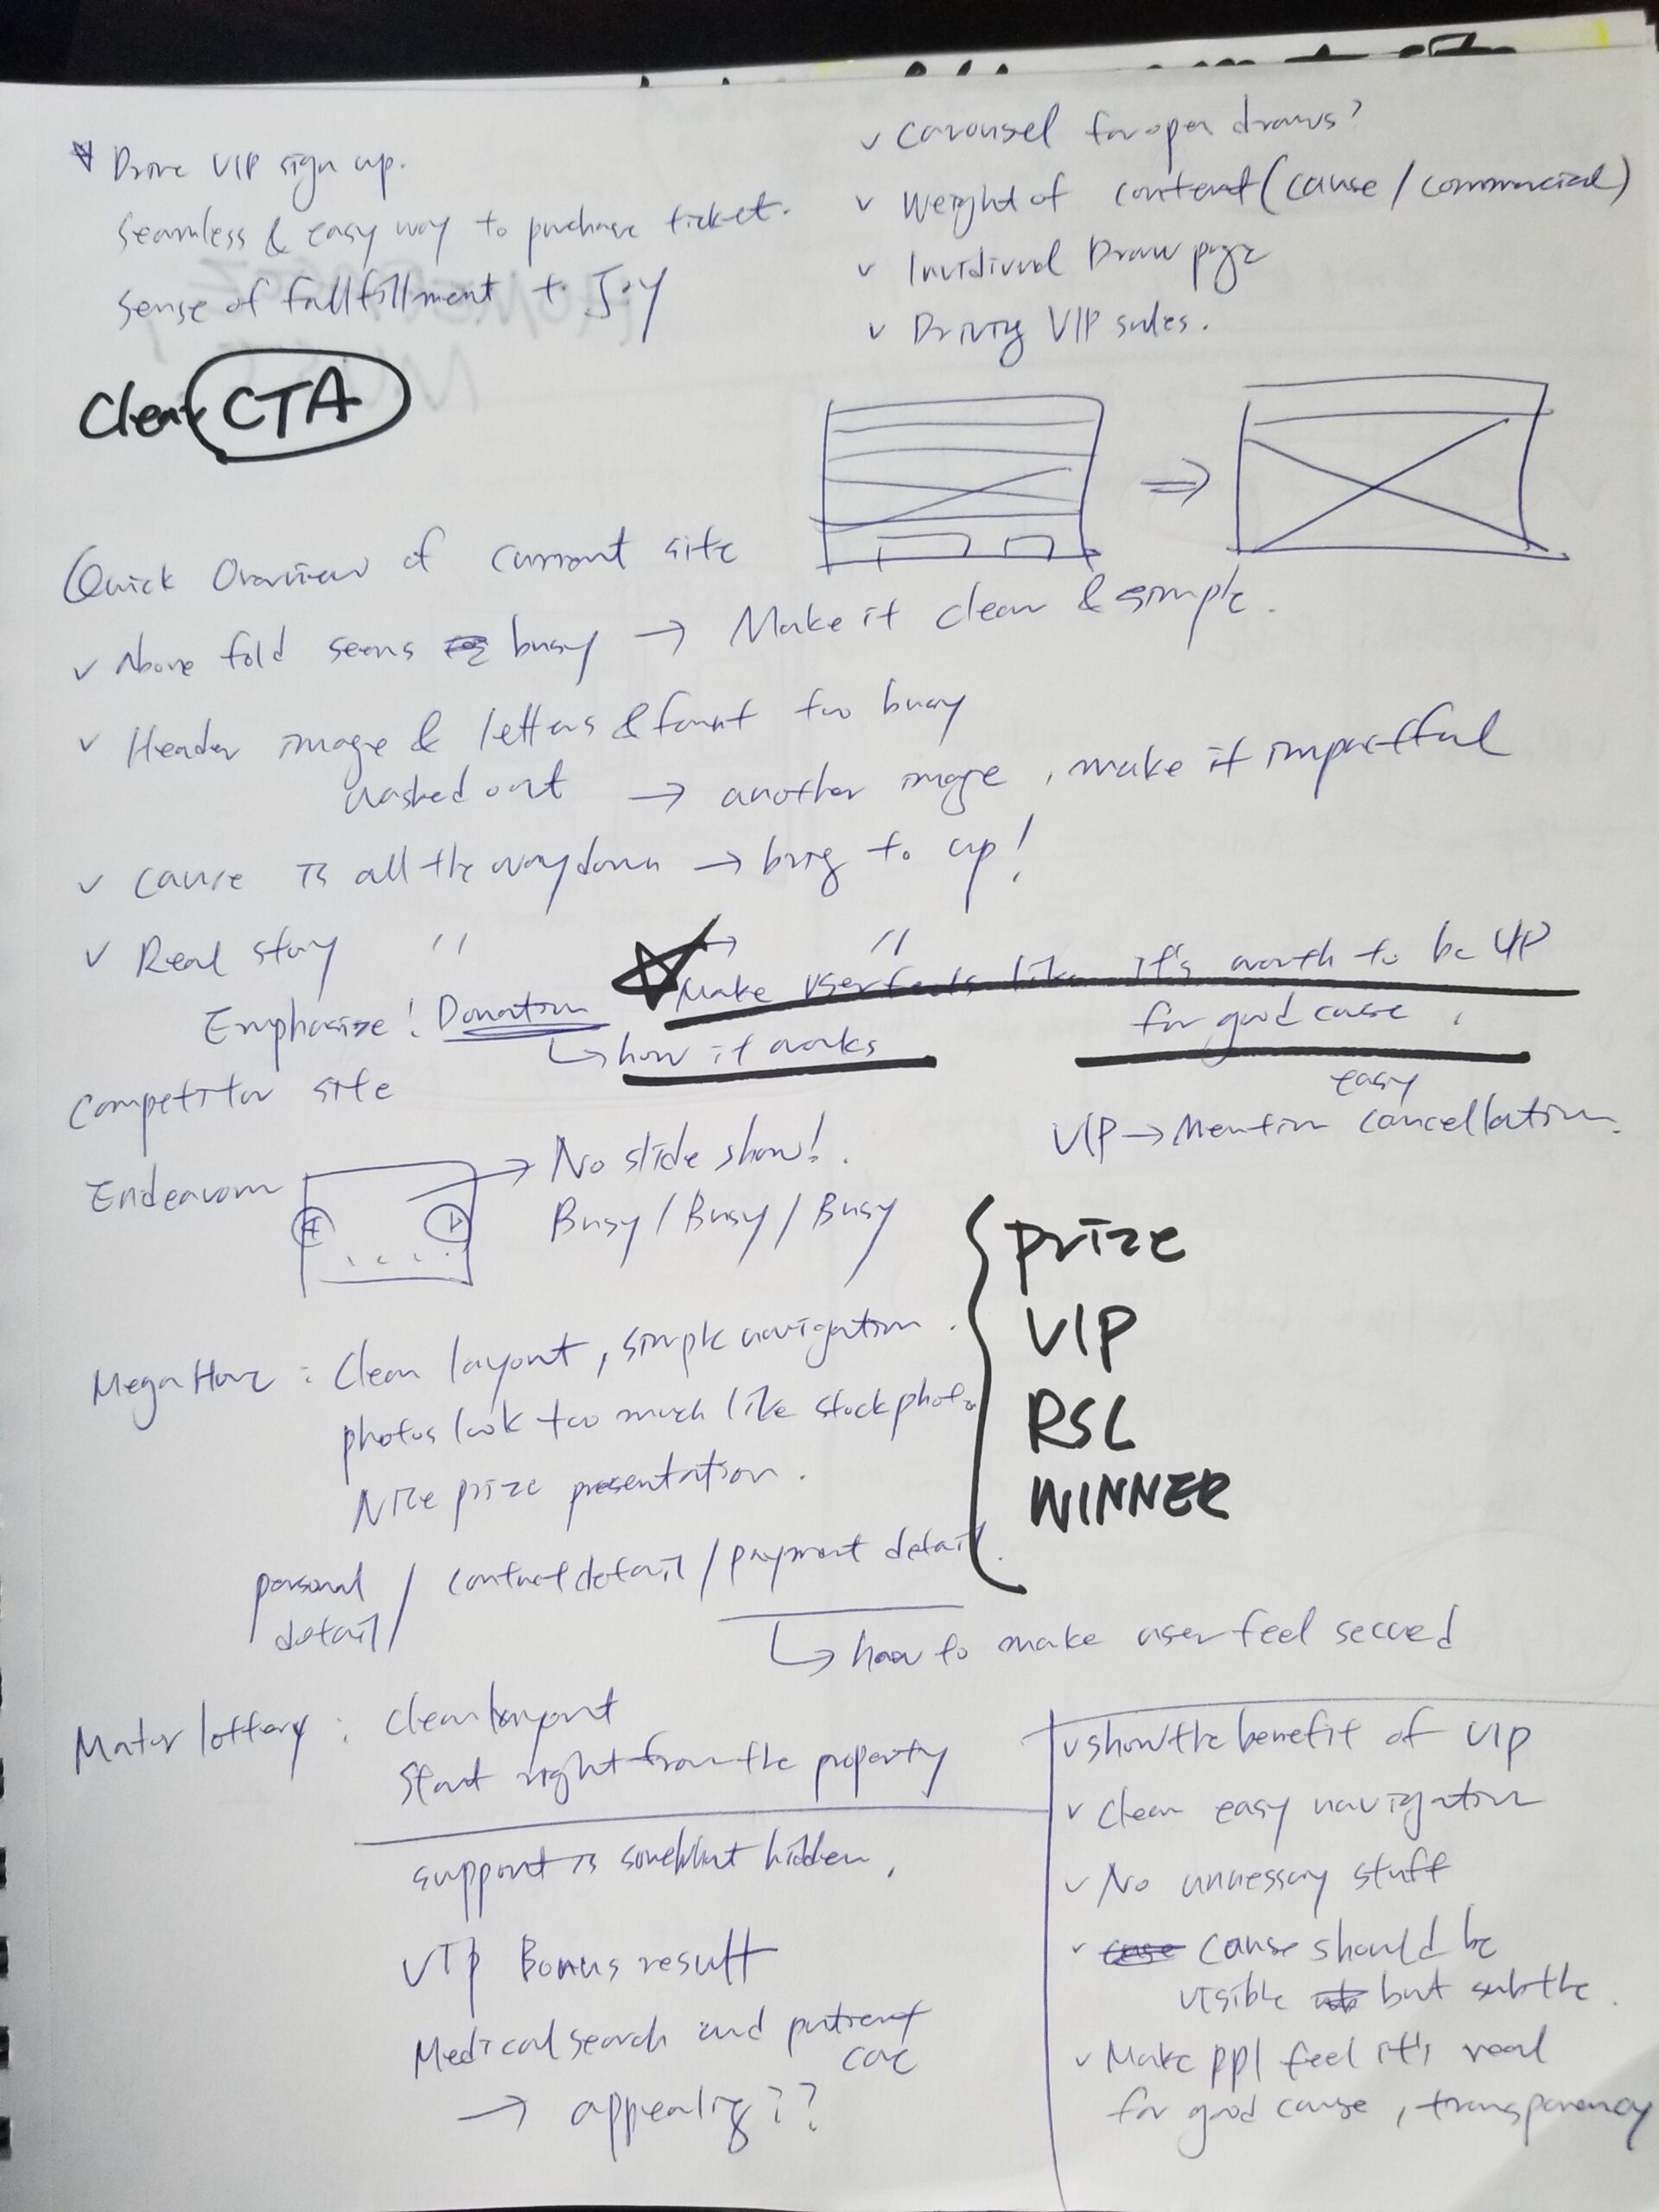 Drive VIP sign up.
Seamless & easy way to purchase ticket.
Sense of fullfillment + Joy
Clear CTA
v Carousel for open draws?
v Weight of content (cause / commercial)
v Invidivual Draw page
v Driving VIP sales.
Quick Overview of current site
v Above fold seems busy → Make it clean & simple.
v Header image & letters & font too busy
washed out → another image, make it impactful
v cause is all the way down → bring to up!
v Real story " → "
Make user feels like it's worth to be VIP
for good case.
Emphasize! Donation
↳ how it works
Competitor site
easy
VIP → Mention cancellation.
Endeavour → No slide show!.
Busy / Busy / Busy
Mega Home : Clean layout, simple navigation.
photos look too much like stock photo
Nice prize presentation.
PRIZE
VIP
RSL
WINNER
personal detail / contact detail / payment detail.
↳ how to make user feel secured
Mater lottery : clean layout
Start right from the property
support is somewhat hidden.
VIP Bonus result
Medical search and patient
care
→ appealing??
v show the benefit of VIP
v Clean easy navigation
v No unnessary stuff
v cause should be
visible but subtle.
v Make ppl feel it's real
for good cause, transparency